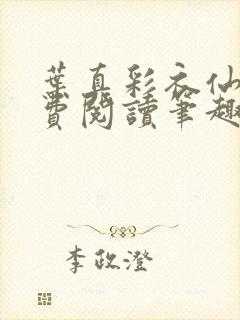 葉真彩衣仙
費閱讀筆趣
李政澄